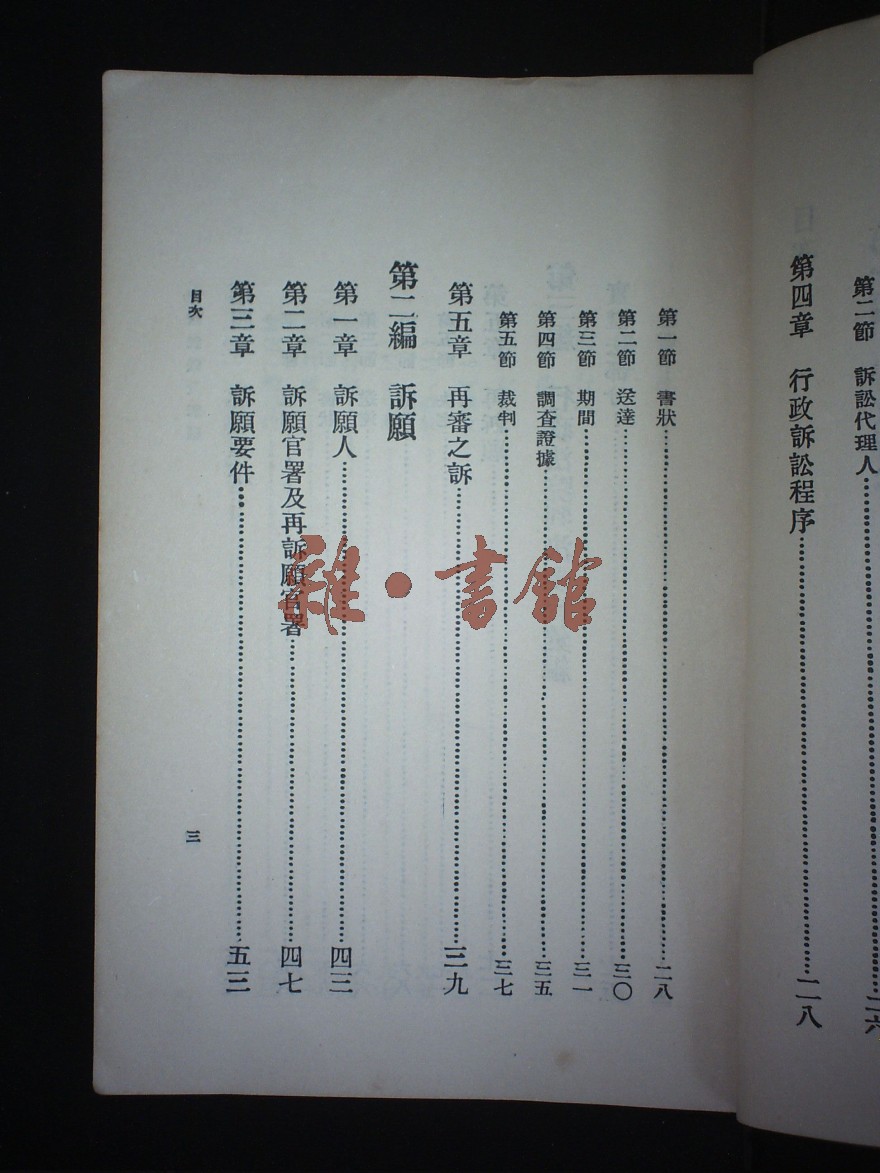 第二節 訴訟代理人……二六
第四章 行政訴訟程序……二八
第一節 書狀……二八
第二節 送達……三〇
第三節 期間……三一
第四節 調查證據……三五
第五節 裁判……三七
第五章 再審之訴……三九
第二編 訴願
第一章 訴願人……四三
第二章 訴願官署及再訴願官署……四七
第三章 訴願要件……五三
目次
三
雜·書館